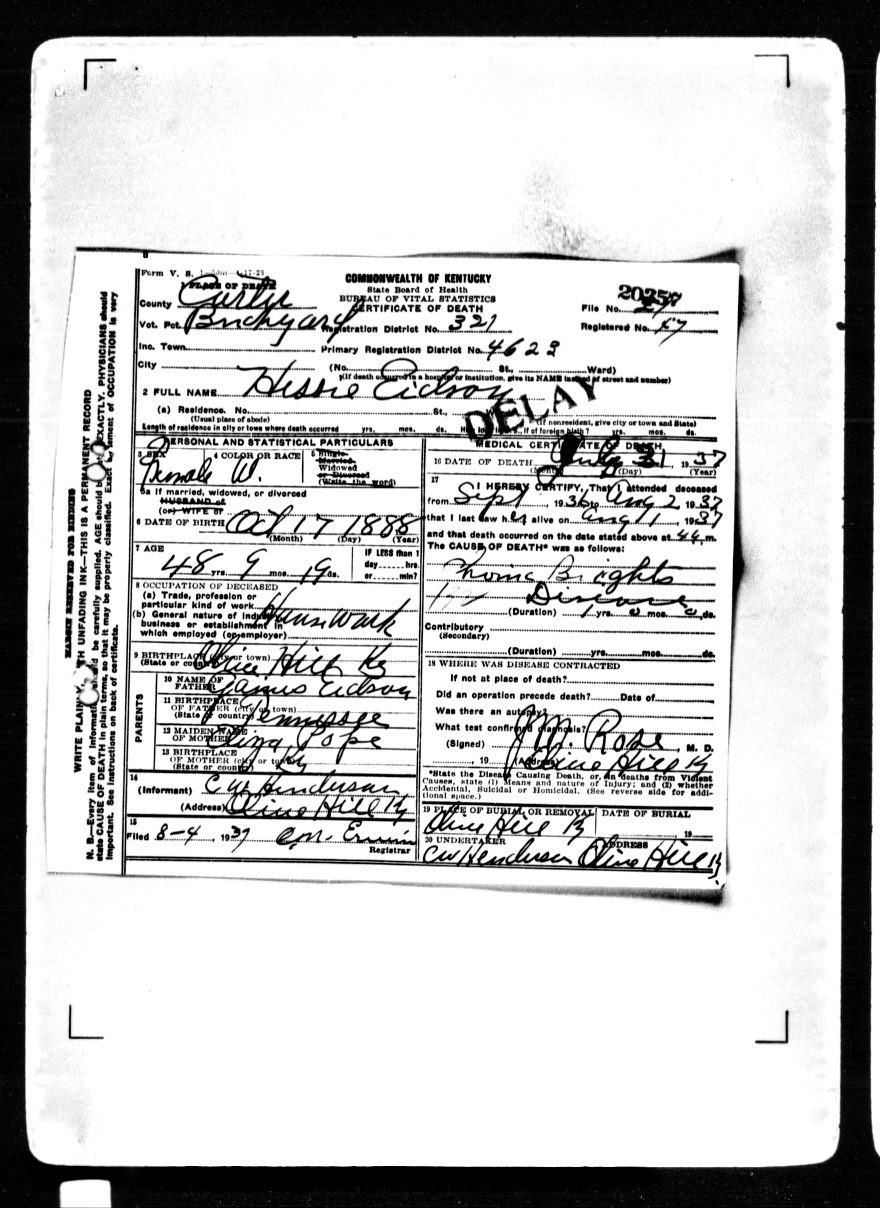 Form V. S. 1-17-28
PLACE OF DEATH
COMMONWEALTH OF KENTUCKY
State Board of Health
BUREAU OF VITAL STATISTICS
CERTIFICATE OF DEATH
County Carter
File No. 20357
Vot. Pct. Registration District No. 321 Registered No. 57
Inc. Town Primary Registration District No. 4623
City (No. St., Ward)
(If death occurred in a hospital or institution, give its NAME instead of street and number)
2 FULL NAME Hessie Eidson
DELAY
(a) Residence. No. St.,
(Usual place of abode) (If nonresident, give city or town and State)
Length of residence in city or town where death occurred yrs. mos. ds. How long in U. S., if of foreign birth? yrs. mos. ds.
PERSONAL AND STATISTICAL PARTICULARS
3 SEX 4 COLOR OR RACE 5 Single
Married
Widowed
or Divorced
(Write the word)
Female W.
5a If married, widowed, or divorced
HUSBAND of
(or) WIFE of
6 DATE OF BIRTH Oct 17 1888
(Month) (Day) (Year)
7 AGE IF LESS than 1
day hrs.
or min?
48 yrs. 9 mos. 19 ds.
8 OCCUPATION OF DECEASED
(a) Trade, profession or
particular kind of work House Work
(b) General nature of industry
business or establishment in
which employed (or employer)
9 BIRTHPLACE (city or town) Olive Hill Ky
(State or country)
PARENTS
10 NAME OF
FATHER James Eidson
11 BIRTHPLACE
OF FATHER (city or town)
(State or country) Tennessee
12 MAIDEN NAME
OF MOTHER Pope
13 BIRTHPLACE
OF MOTHER (city or town)
(State or country) Ky
14
(Informant) C W Henderson
(Address) Olive Hill Ky
15
Filed 8-4, 1937
Registrar
MEDICAL CERTIFICATE OF DEATH
16 DATE OF DEATH July 31, 1937
(Month) (Day) (Year)
17
I HEREBY CERTIFY, That I attended deceased
from Sept, 1936 to Aug 2 1937
that I last saw her alive on Aug 1 1937
and that death occurred on the date stated above at m.
The CAUSE OF DEATH* was as follows:
Brights
Disease
(Duration) 1 yrs. mos. ds.
Contributory
(Secondary)
(Duration) yrs. mos. ds.
18 WHERE WAS DISEASE CONTRACTED
If not at place of death?
Did an operation precede death? Date of
Was there an autopsy?
What test confirmed diagnosis?
(Signed) J M Rose, M. D.
, 19 (Address) Olive Hill Ky
*State the Disease Causing Death, or, in deaths from Violent
Causes, state (1) Means and nature of Injury; and (2) whether
Accidental, Suicidal or Homicidal. (See reverse side for addi-
tional space.)
19 PLACE OF BURIAL OR REMOVAL DATE OF BURIAL
Olive Hill Ky 19
20 UNDERTAKER ADDRESS
CW Henderson Olive Hill Ky
MARGIN RESERVED FOR BINDING
WRITE PLAINLY, WITH UNFADING INK—THIS IS A PERMANENT RECORD
N. B.—Every item of information should be carefully supplied. AGE should be EXACTLY. PHYSICIANS should
state CAUSE OF DEATH in plain terms, so that it may be properly classified. Exact statement of OCCUPATION is very
important. See instructions on back of certificate.